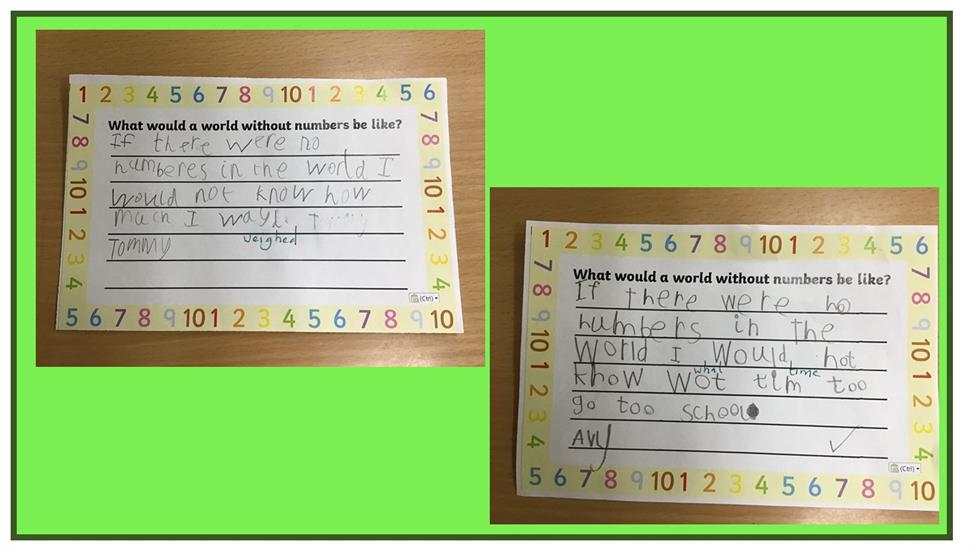 1 2 3 4 5 6 7 8 9 10 1 2 3 4 5 6
7 8 9 10 1 2 3 4
What would a world without numbers be like?
If there were no
numberes in the world I
would not know how
much I wayd.
weighed
Tommy
7 8 9 10 1 2 3 4
(Ctrl)
5 6 7 8 9 10 1 2 3 4 5 6 7 8 9 10
1 2 3 4 5 6 7 8 9 10 1 2 3 4 5 6
7 8 9 10 1 2 3 4
What would a world without numbers be like?
If there were no
numbers in the
World I Would not
what time
know Wot tim too
go too school
Avy
7 8 9 10 1 2 3 4
(Ctrl)
5 6 7 8 9 10 1 2 3 4 5 6 7 8 9 10